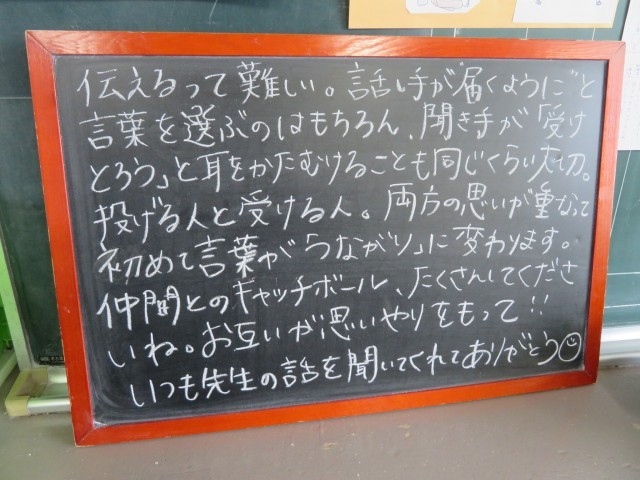 伝えるって難しい。話し手が届くように"と
言葉を選ぶのはもちろん、聞き手が「受け
とろう」と耳をかたむけることも同じくらい大切。
投げる人と受ける人。両方の思いが重なって
初めて言葉が「つながり」に変わります。
仲間とのキャッチボール、たくさんしてくださ
いね。お互いが思いやりをもって!!
いつも先生の話を聞いてくれてありがとう☺